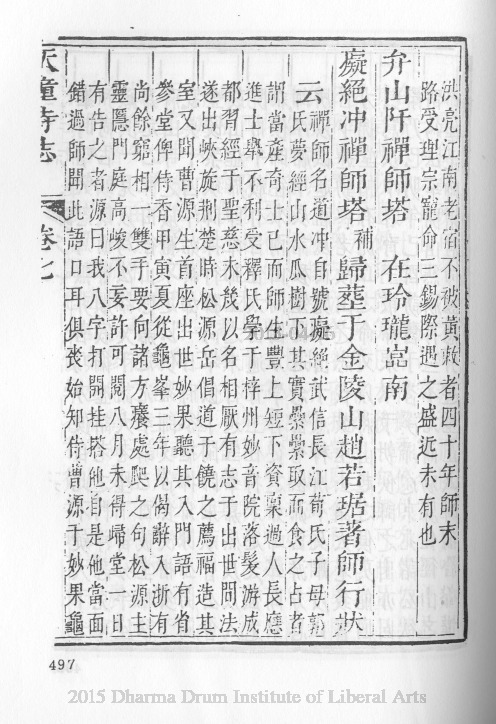 洪亮江南老宿不被黃敕者四十年師末
路受理宗寵命三錫際遇之盛近未有也
弁山阡禪師塔 在玲瓏嵓南
癡絕冲禪師塔 補 歸塟于金陵山趙若琚著師行狀
云禪師名道冲自號癡絕武信長江荀氏子母郭
氏夢經山水瓜樹下其實纍纍取而食之占者
謂當產奇士已而師生豐上短下資稟過人長應
進士舉不利受釋氏學于梓州妙音院落髮游成
都習經于聖慈未幾以名相厭有志于出世間法
遂出峽旋荆楚時松源岳倡道于饒之薦福造其
室又聞曹源生首座出世妙果聽其入門語有省
參堂俾侍香甲寅夏從龜峯三年以偈辭入浙有
尚餘窮相一雙手要向諸方癢處爬之句松源主
靈隱門庭高峻不妄許可閱八月未得歸堂一日
有告之者源曰我八字打開挂搭他自是他當面
錯過師聞此語口耳俱喪始知侍曹源于妙果龜
天童寺志
卷七
497
2015 Dharma Drum Institute of Liberal Arts